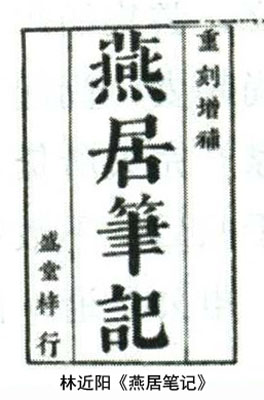 重刻增補
燕居筆記
盛堂梓行
林近阳《燕居笔记》